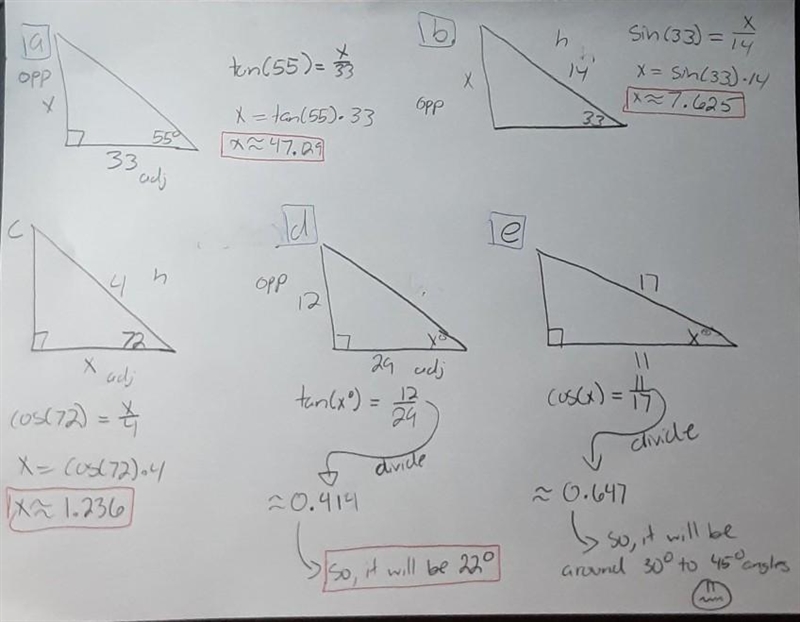 a
opp
x
55°
33
adj
tan(55) = x/33
x = tan(55)·33
x ≈ 47.29
b
h
14
x
opp
33
sin(33) = x/14
x = sin(33)·14
x ≈ 7.625
c
4 h
72
x
adj
cos(72) = x/4
x = cos(72)·4
x ≈ 1.236
d
opp
12
x°
29 adj
tan(x°) = 12/29
divide
≈ 0.414
so, it will be 22°
e
17
x°
11
cos(x) = 11/17
divide
≈ 0.647
so, it will be
around 30° to 45° angles